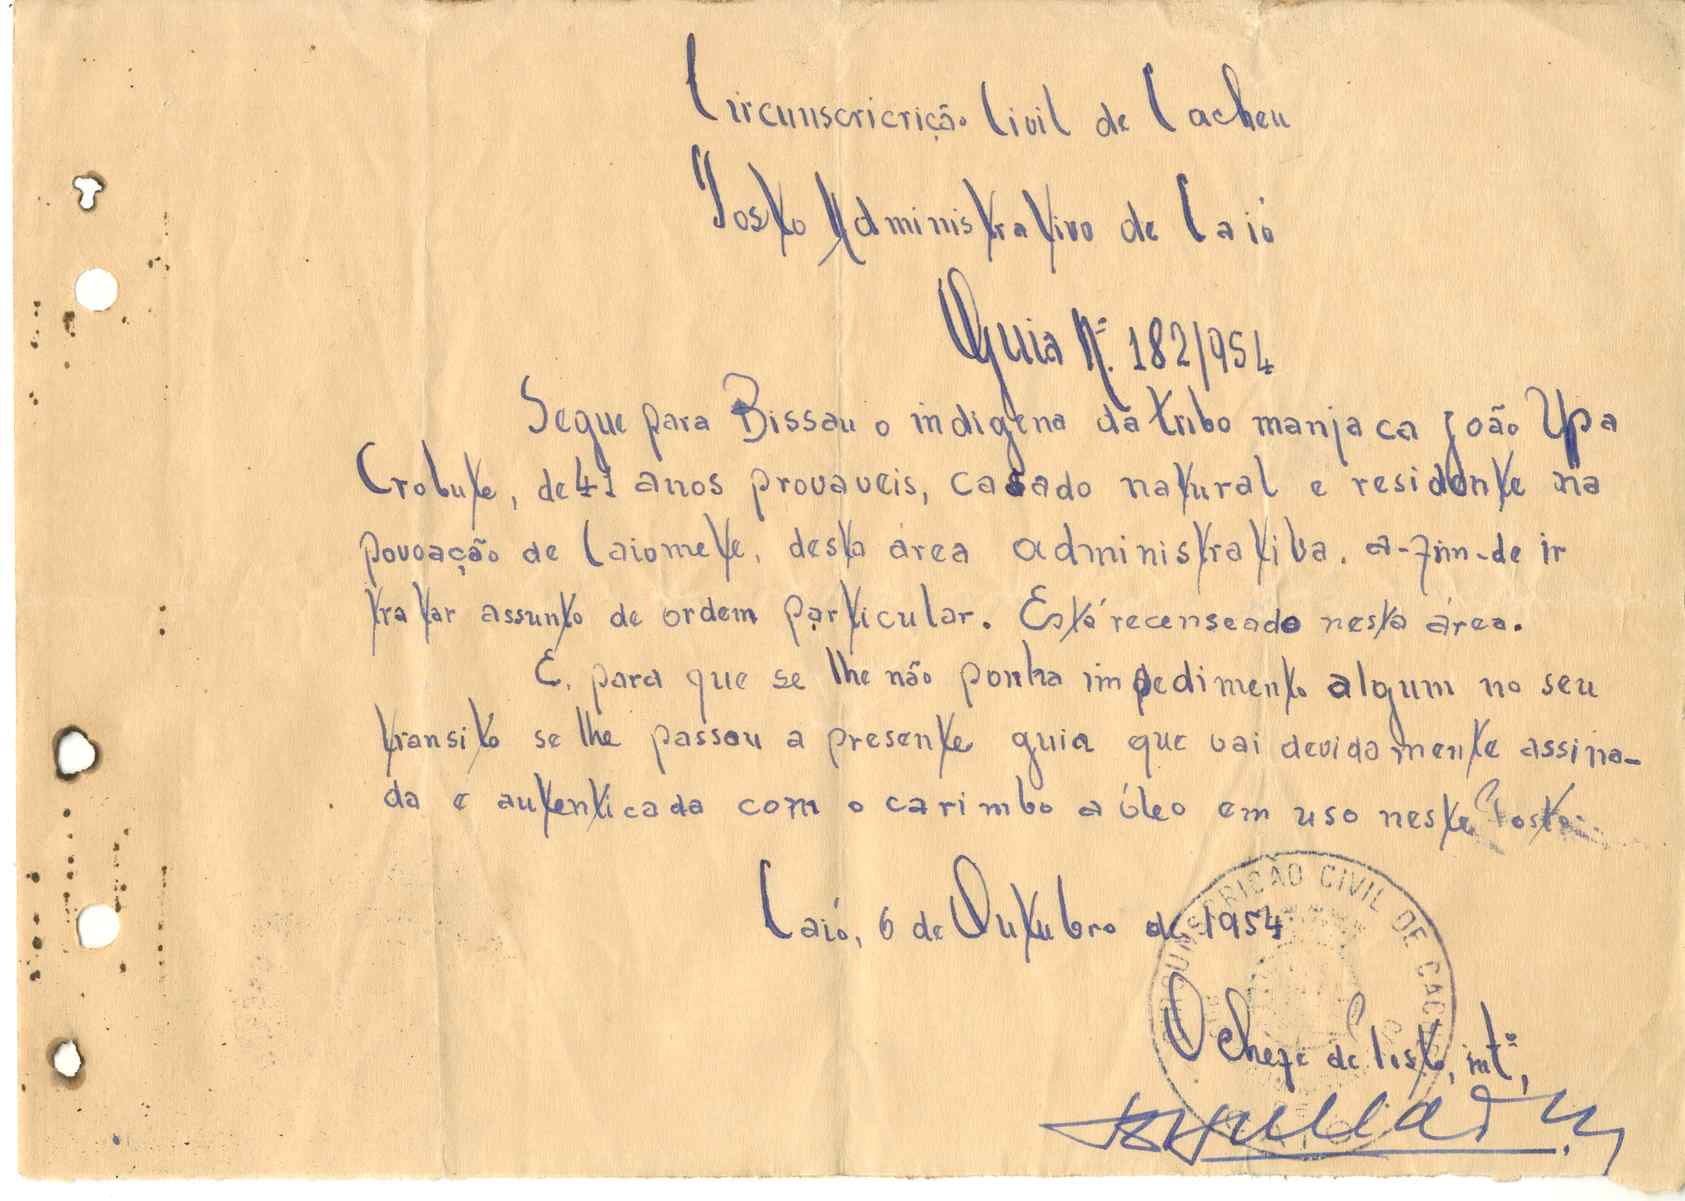 Circunscricrição Civil de Cacheu
Posto Administrativo de Caió
Guia N.º 182/954
Segue para Bissau o indigena da tribo manjaca João Upa
Crobute, de 41 anos provaveis, casado natural e residente na
povoação de Caiomete, desta área administrativa, a-fim-de ir
tratar assunto de ordem particular. Está recenseado nesta área.
E, para que se lhe não ponha impedimento algum no seu
transito se lhe passou a presente guia que vai devidamente assina-
da e autenticada com o carimbo a óleo em uso neste Posto.
Caió, 6 de Outubro de 1954
CIRCUNSCRIÇÃO CIVIL DE CACHEU
O Chefe de Posto, intº,